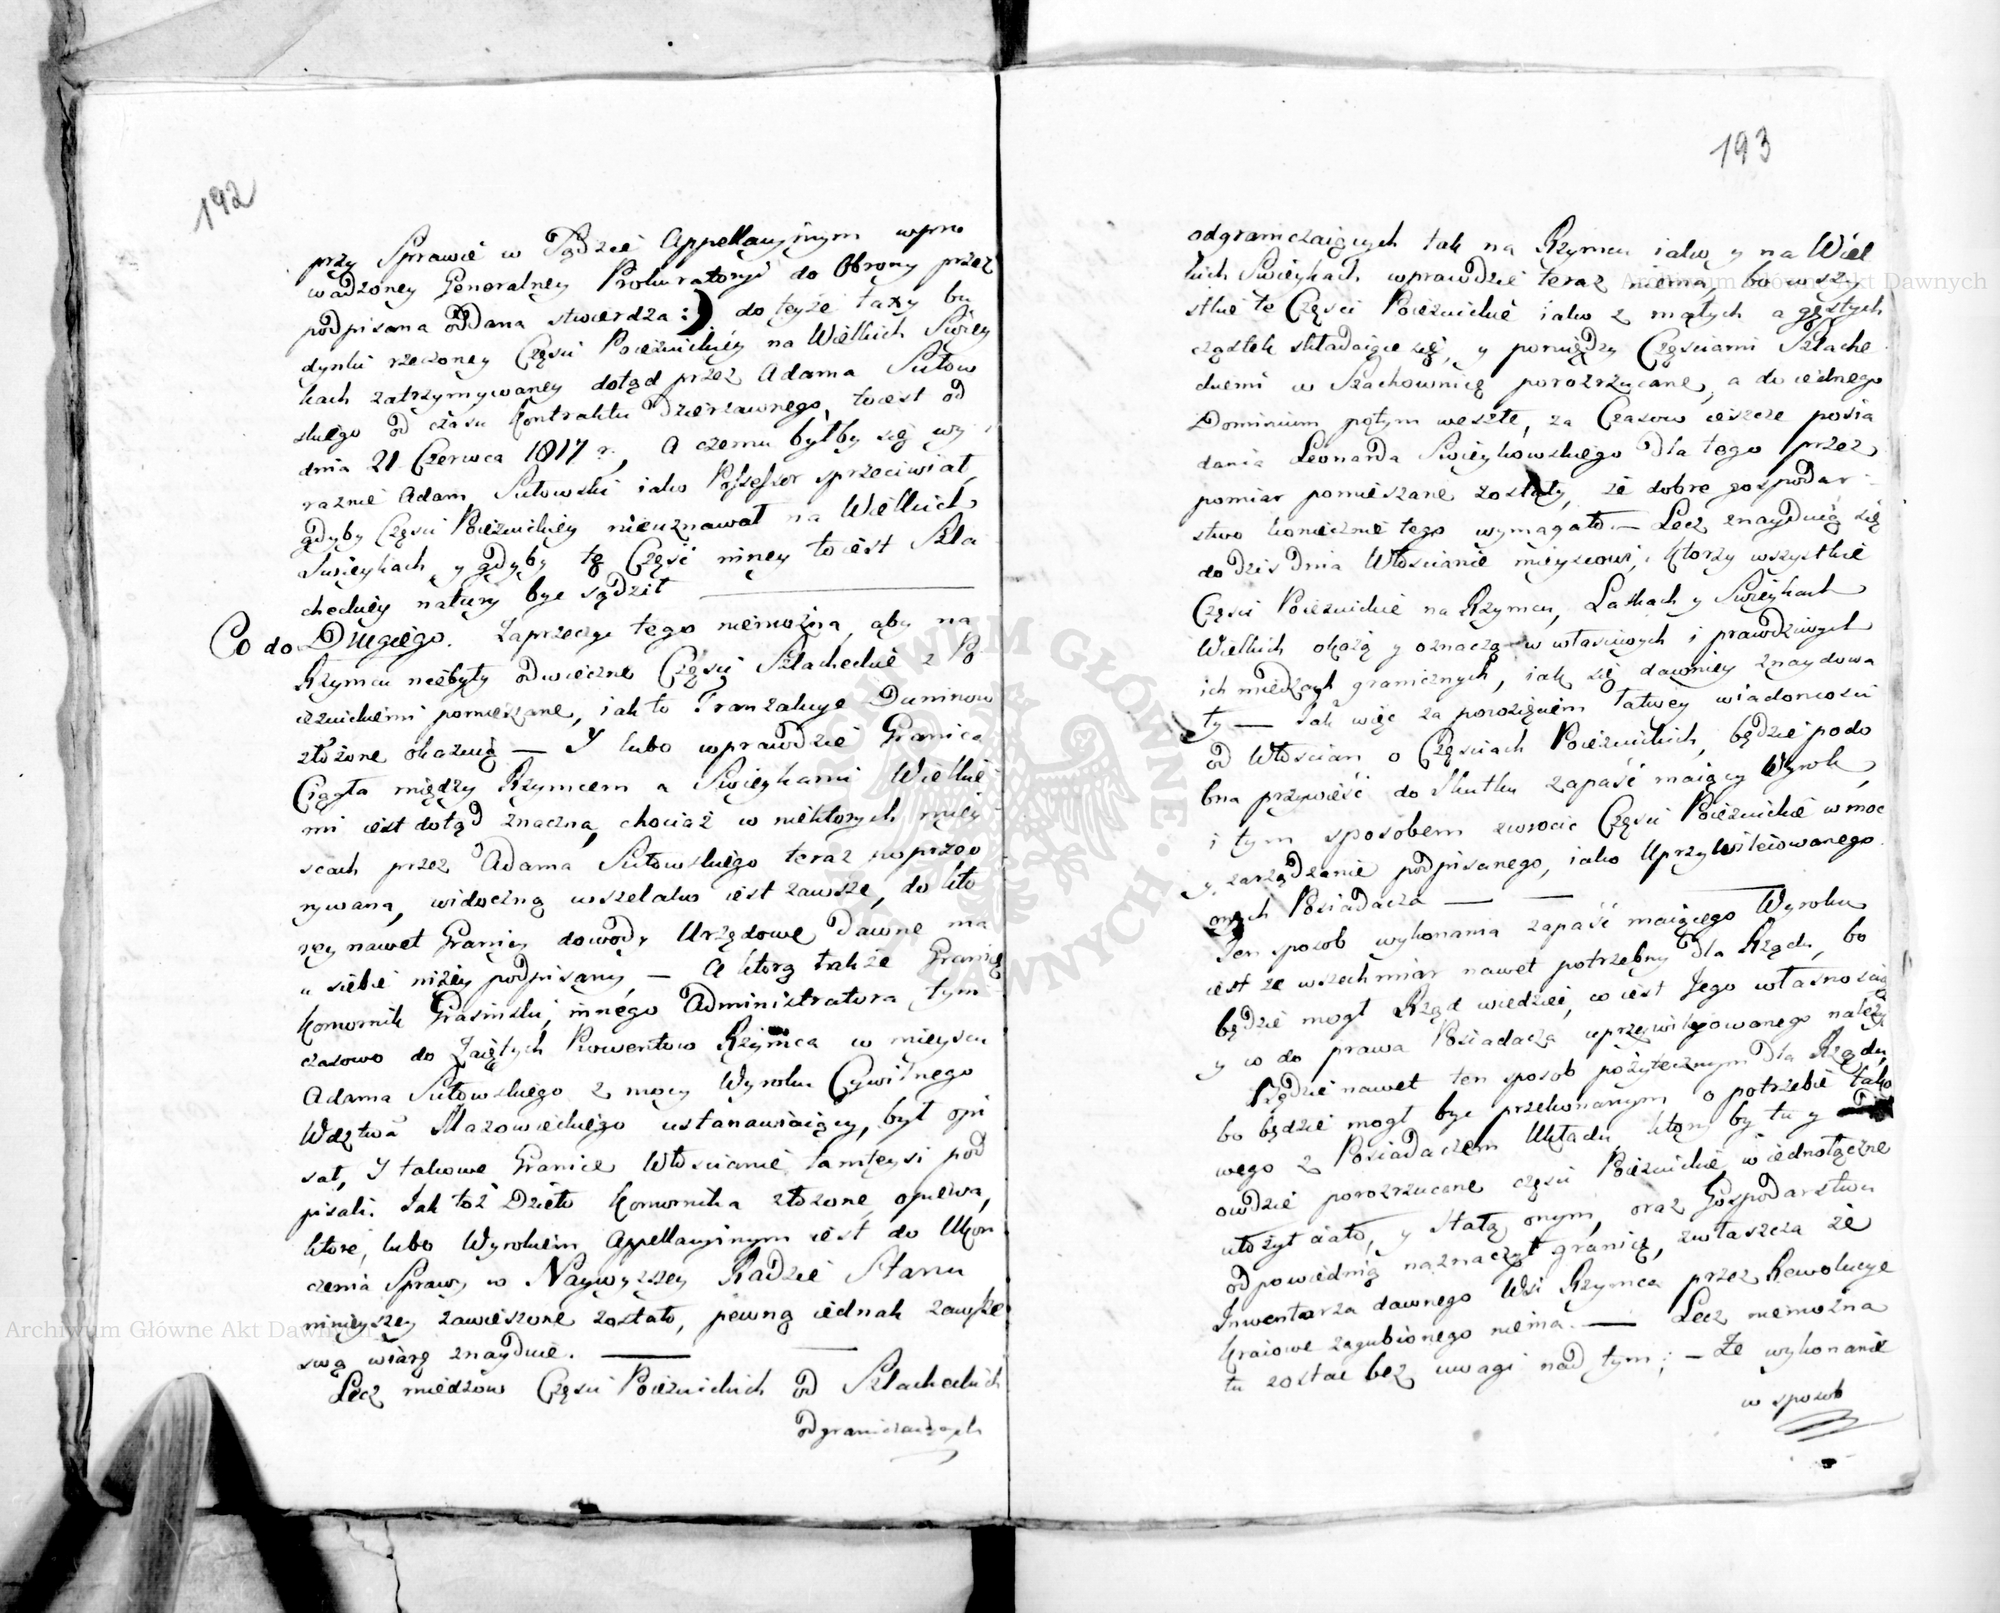 192
przy Sprawie w Sądzie Appellacyinym wpro
wadzoney Generalney Prokuratoryi do Obrony przez
podpisana oddana stwierdza:) do teyże taxy bu
dynki rzeczoney Części Poiezuickiey na Wielkich Święy
kach zatrzymywaney dotąd przez Adama Sutow
skiego od czasu Kontraktu Dzierzawnego, toiest od
dnia 21 Czerwca 1817 r., a czemu byłby się wy
raznie Adam Sutowski iako Possessor sprzeciwiał,
gdyby Części Poiezuickiey nieuznawał na Wielkich
Swięykach, y gdyby tę Część inney toiest Szla
checkiey natury bydź sądził
Co do Drugiego. Zaprzeczyć tego niemożna, aby na
Rzymcu niebyły odwieczne Części Szlacheckie z Po
iezuickiemi pomieszane, iak to Tranzakcye Duninow
złożone okazuią — Y lubo wprawdzie Granica
Ciągła między Rzymcem a Swięykami Wielkie
mi iest dotąd znaczna, chociaż w niektorych miey
scach przez Adama Sutowskiego teraz poprzeo
rywana, widoczną wszelako iest zawsze, do kto
rey nawet Granicy dowody Urzędowe dawne ma
u siebie niżey podpisany, — A ktorą także Granicę
Komornik Grasinski, innego Administratora tym
czasowo do Zaiętych Prowentow Rzymca w mieyscu
Adama Sutowskiego z mocy Wyroku Cywilnego
Wdztwa Mazowieckiego ustanawiaiący, był opi
sał, Y takowe Granice Włościanie tamteysi pod
pisali. Jak toż Dzieło Komornika złożone opiewa,
ktore, lubo Wyrokiem Appellacyinym iest do Ukon
czenia Sprawy w Naywyższey Radzie Stanu
ninieyszey zawieszone zostało, pewną iednak zawsze
swą wiarę znaydzie. —
Lecz miedzow Części Poiezuickich od Szlacheckich
odgraniczaiących
193
odgraniczaiących tak na Rzymcu iako y na Wiel
kich Swięykach wprawdzie teraz niema, bo wszy
stkie te Części Poiezuickie iako z małych a gęstych
cząstek składaiące się, y pomiędzy Częściami Szlache
ckiemi w Szachownicę porozrzucane, a do iednego
Dominium potym weszłe, za Czasow ieszcze posia
dania Leonarda Swięykowskiego dla tego przez
pomiar pomieszane zostały, że dobre gospodar
stwo koniecznie tego wymagało — Lecz znaydują się
do dziś dnia Włościanie mieyscowi, ktorzy wszystkie
Części Poiezuickie na Rzymcu, Laskach y Swięykach
Wielkich okażą y oznaczą w właściwych i prawdziwych
ich miedzach granicznych, iak się dawniey znaydowa
ły — Jak więc za powzięciem łatwey wiadomości
od Włościan o Częściach Poiezuickich, będzie podo
bna przywieść do Skutku zapaść maiący Wyrok,
i tym sposobem zwrocić Części Poiezuickie w moc
y zarządzanie podpisanego, iako Uprzywileiowanego
onych Posiadacza — —
Ten sposob wykonania zapaść maiącego Wyroku
iest ze wszech miar nawet potrzebny dla Rządu, bo
będzie mogł Rząd wiedzieć, co iest Jego własnością
y co do prawa Posiadacza uprzywilejowanego należy
Będzie nawet ten sposob pożytecznym dla Rządu,
bo będzie mogł bydź przekonanym o potrzebie tako
wego z Posiadaczem Układu, ktory by tu y
owdzie porozrzucane części Poiezuickie w iednołączne
ułożył ciało, y stałą onym, oraz Gospodarstwu
odpowiednią naznaczył granicę, zwłaszcza że
Inwentarza dawnego Wsi Rzymca przez Rewolucye
Kraiowe zagubionego niema. — Lecz niemożna
tu zostać bez uwagi nad tym; — Ze wykonanie
w sposob
Archiwum Główne Akt Dawnych
Archiwum Główne Akt Dawnych
ARCHIWUM GŁÓWNE AKT DAWNYCH